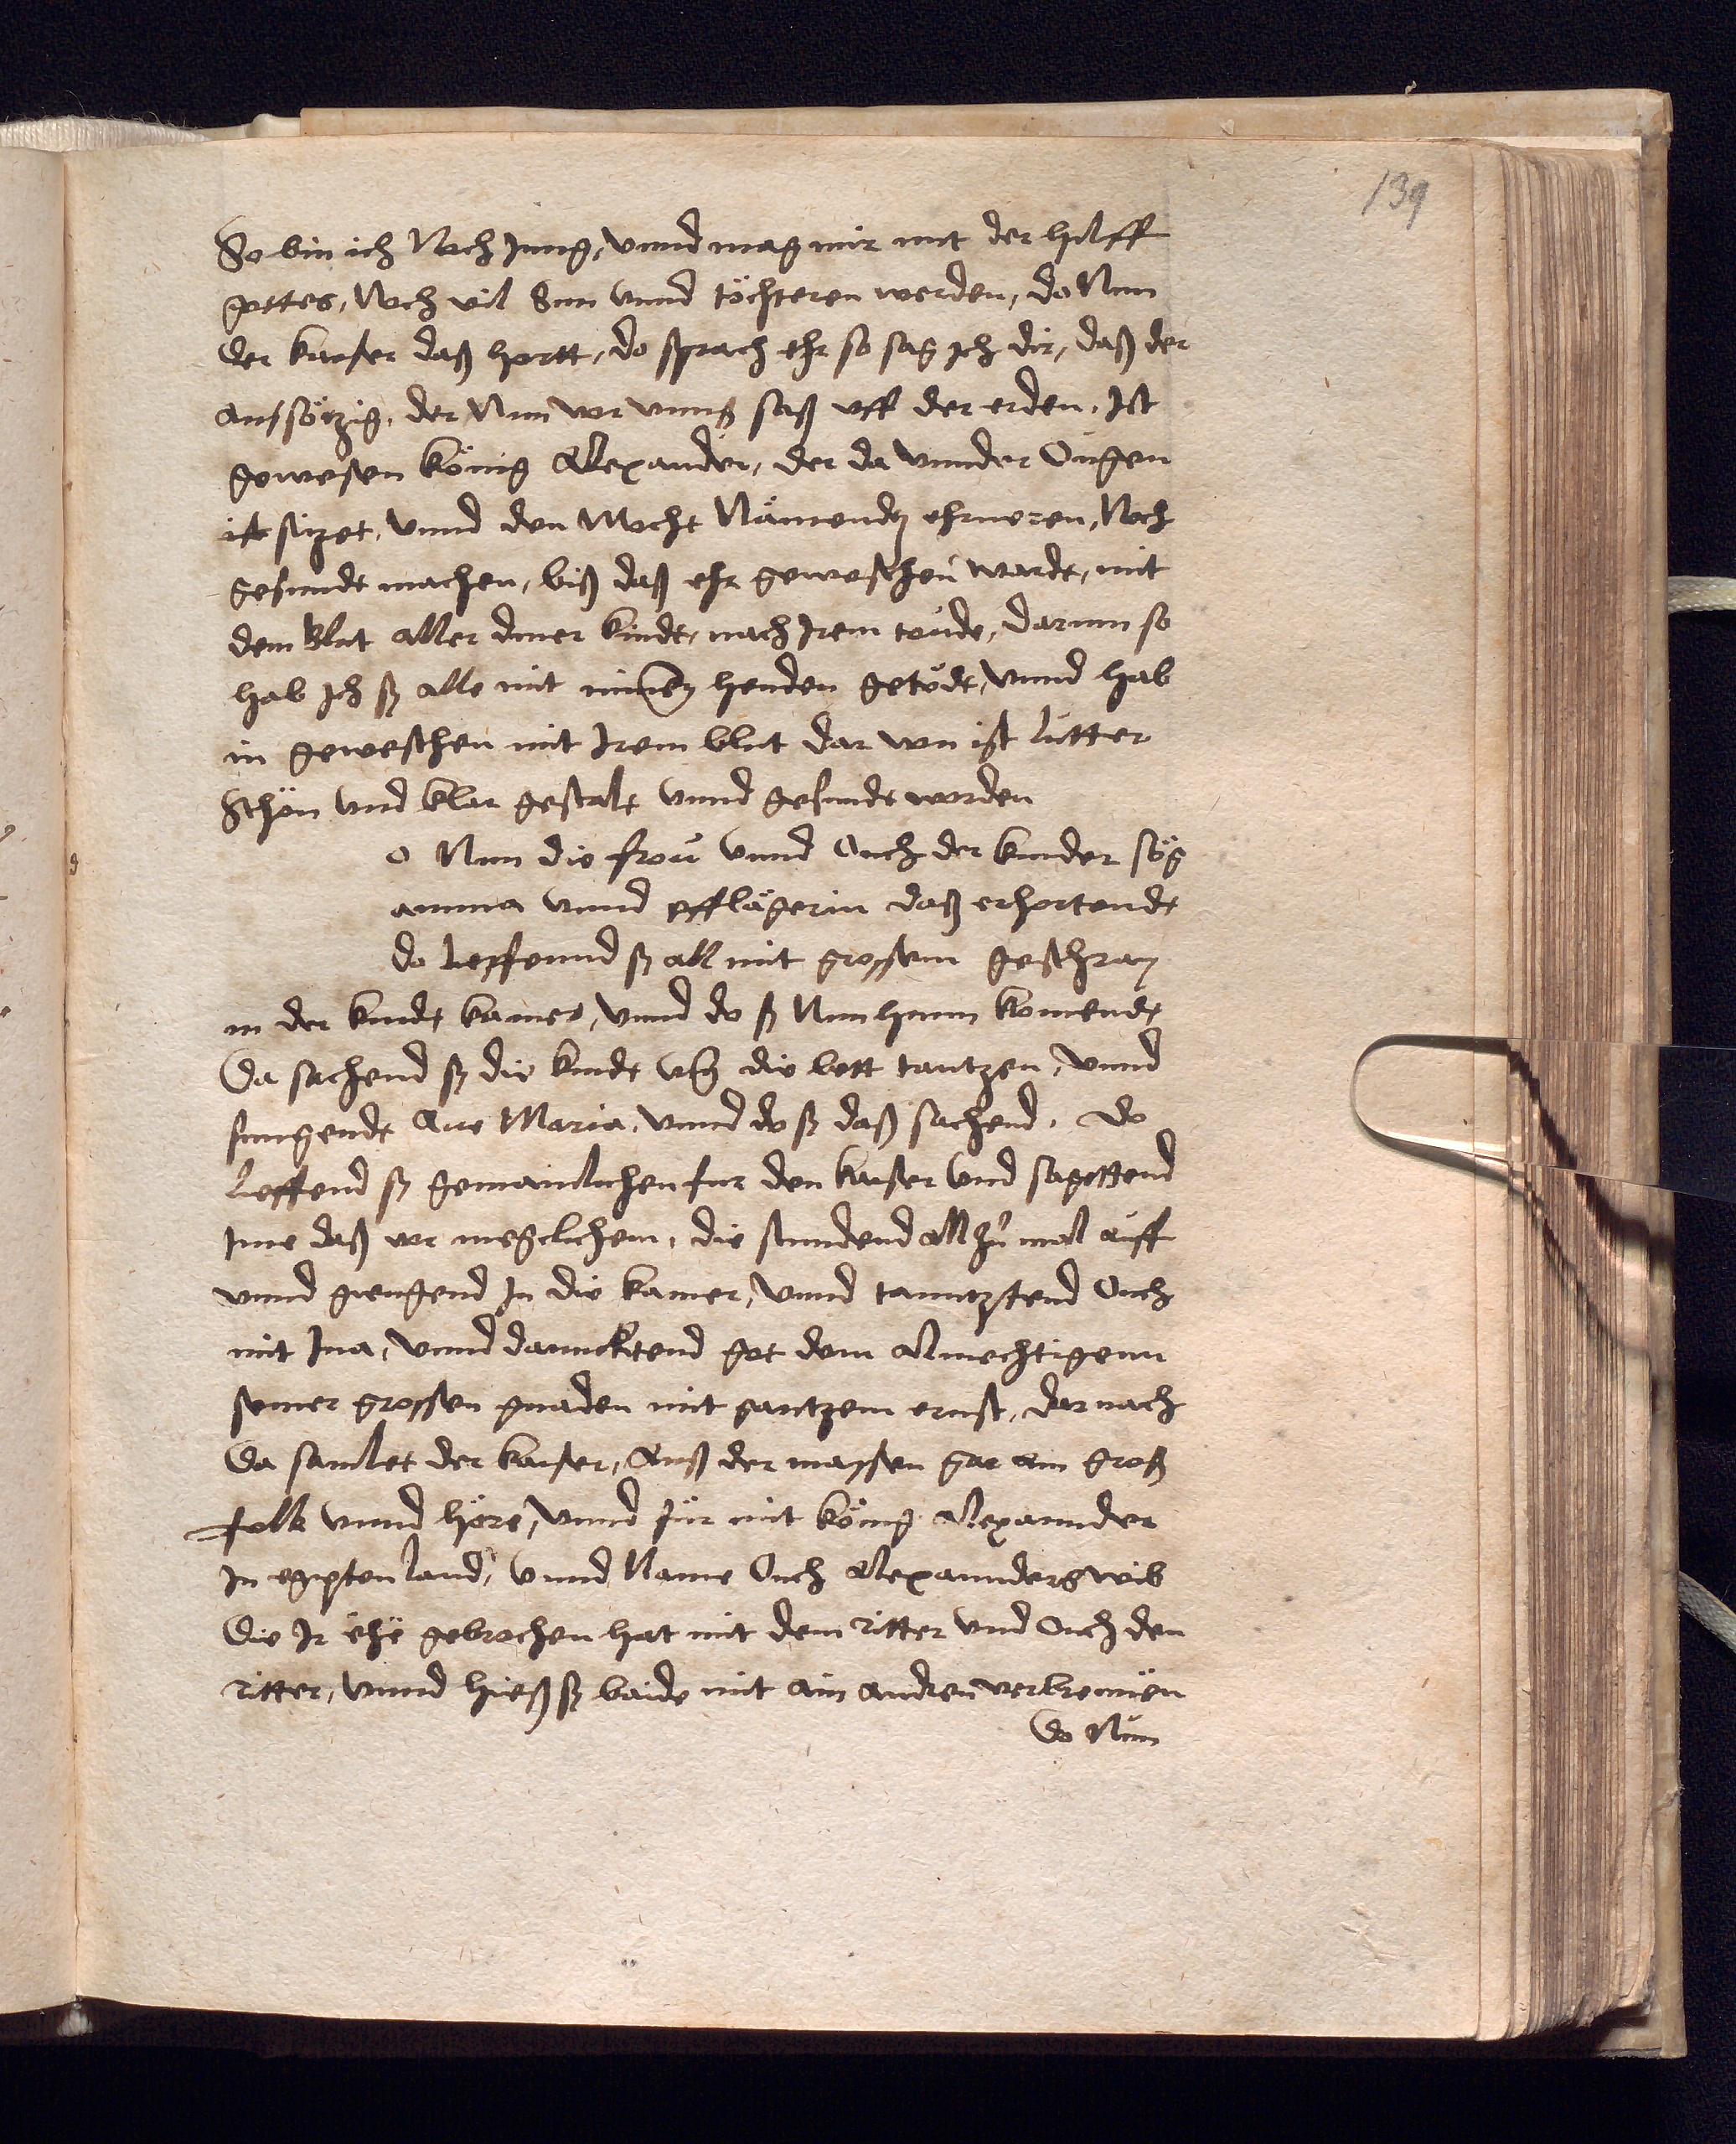 139
So bin ich Noch Jung, vnnd mag mir mit der hilff
gottes, Noch vil Sun vnnd töchteren werden, do Nun
der kaiser daß hortt, do sprach ehr so sag Ich dir, daß der
aussötzig, der Nun vor vnnß saß vff der erden, Ist
gewesen könig Allexander, der da vnnder Ougen
ist sitzet, vnnd den Mocht Nämendz ehrneren, Noch
gesundt machen, biß daß ehr geweschen wardt, mit
dem Blut aller diner kindt, nach Irem toude, darum so
hab Ich sy alle mit minen henden getödt, vnnd hab
in geweschen mit Irem blut dar von ist lutter
Schön vnd klar gestalt vnnd gesundt worden
o Nun die frou vnnd Ouch der kinder sög
amma vnnd pfflägerin daß erhortendt
do lieffennd sy all mit grossem geschray
in der kindt kamer, vnnd do sy Nun hinin komendt
Da sachend sy die kindt vmb die bett tantzen, vnnd
sungendt Aue Maria, vnnd do sy daß sachend, do
lieffend sy gemainlichen fur den kaiser vnd sagettend
Ime daß vor meglichem, die stundend all zu mal auff
vnnd giengend In die kamer, vnnd tanntztend Ouch
mit Ina, vnnd dannckttend got dem Almechtigenn
seiner grossen gnaden mit gantzem ernst, dar nach
Da samlet der kaiser, Auß der massen gar ain groß
folk vnnd höre, vnnd für mit könig Allexannder
In egipten land, vnnd Name Ouch Allexannders wib
Die Ir ehe gebrochen hat mit dem ritter vnd Ouch den
ritter, vnnd hieß sy baide mit ain andren verbrennen
Do Nun